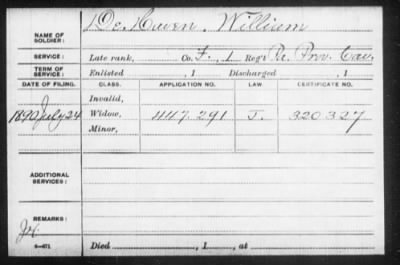 NAME OF SOLDIER: De Haven, William
SERVICE: Late rank, Co. F, 1 Reg't Pa. Prov. Cav.
TERM OF SERVICE: Enlisted , 1 Discharged , 1
DATE OF FILING. CLASS. APPLICATION NO. LAW CERTIFICATE NO.
Invalid,
1890 July 24 Widow, 447.291 J. 320327
Minor,
ADDITIONAL SERVICES:
REMARKS:
6-071
Died , 1 , at